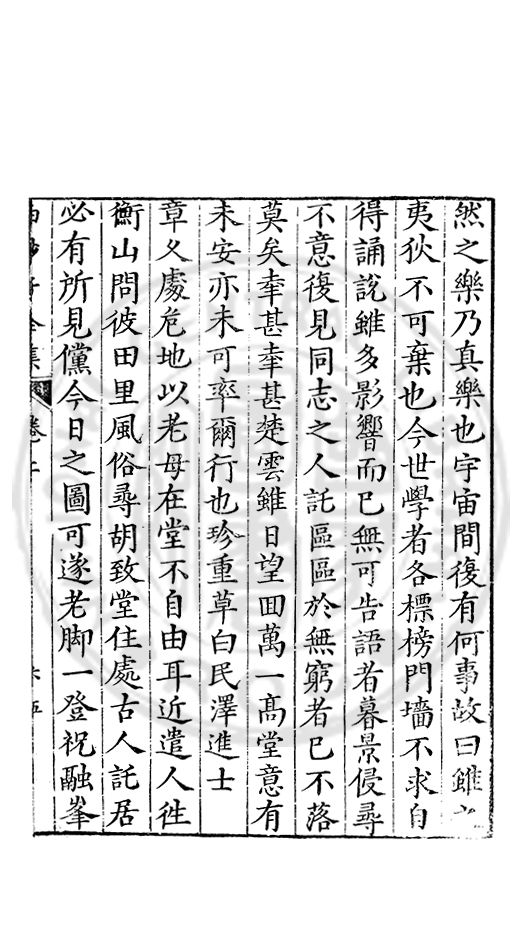 然之樂乃真樂也宇宙間復有何事故曰雖之
夷狄不可棄也今世學者各標榜門墻不求自
得誦說雖多影響而已無可告語者暮景侵尋
不意復見同志之人託區區於無窮者已不落
莫矣幸甚幸甚楚雲雖日望囬萬一高堂意有
未安亦未可率爾行也珍重草白民澤進士
章久處危地以老母在堂不自由耳近遣人徃
衡山問彼田里風俗尋胡致堂住處古人託居
必有所見儻今日之圖可遂老脚一登祝融峯
全集 卷二